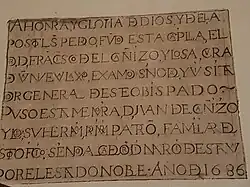 AHONRA Y GLORIA D DIOS, Y DE LA
POSTL S PEDO, FVDO ESTA CPILA, EL
D, D, FRACSCO DEL CÑIZO, Y LOSA, CRA
D VNVEVLXº, EXAMOR SNOD, Y V SIT
OR GENERA DESTE OBISPADO
PVSO ESTA MEMRA, D JVAN DE CÑIZO
Y LO, SV HERMNº, PATRO, FAMILAR D
STOFCO, SEN DA CA DODN RO DESTA V
POR EL ESTADO NOBE. ANO, D 1686